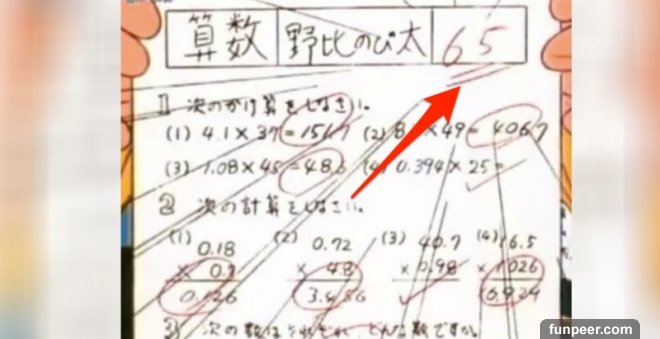 算数 野比のび太 65
1 次のかけ算をしなさい。
(1) 4.1×37=151.7 (2) 8 ×49= 406.7
(3) 1.08×45=48.6 (4) 0.394×25=
2 次の計算をしなさい。
(1) (2) (3) (4)
0.18 0.72 40.7 16.5
× 0.7 × 4.8 × 0.98 ×
0.126 3.456
3 次の数はそれぞれ、どんな数ですか。
funpeer.com